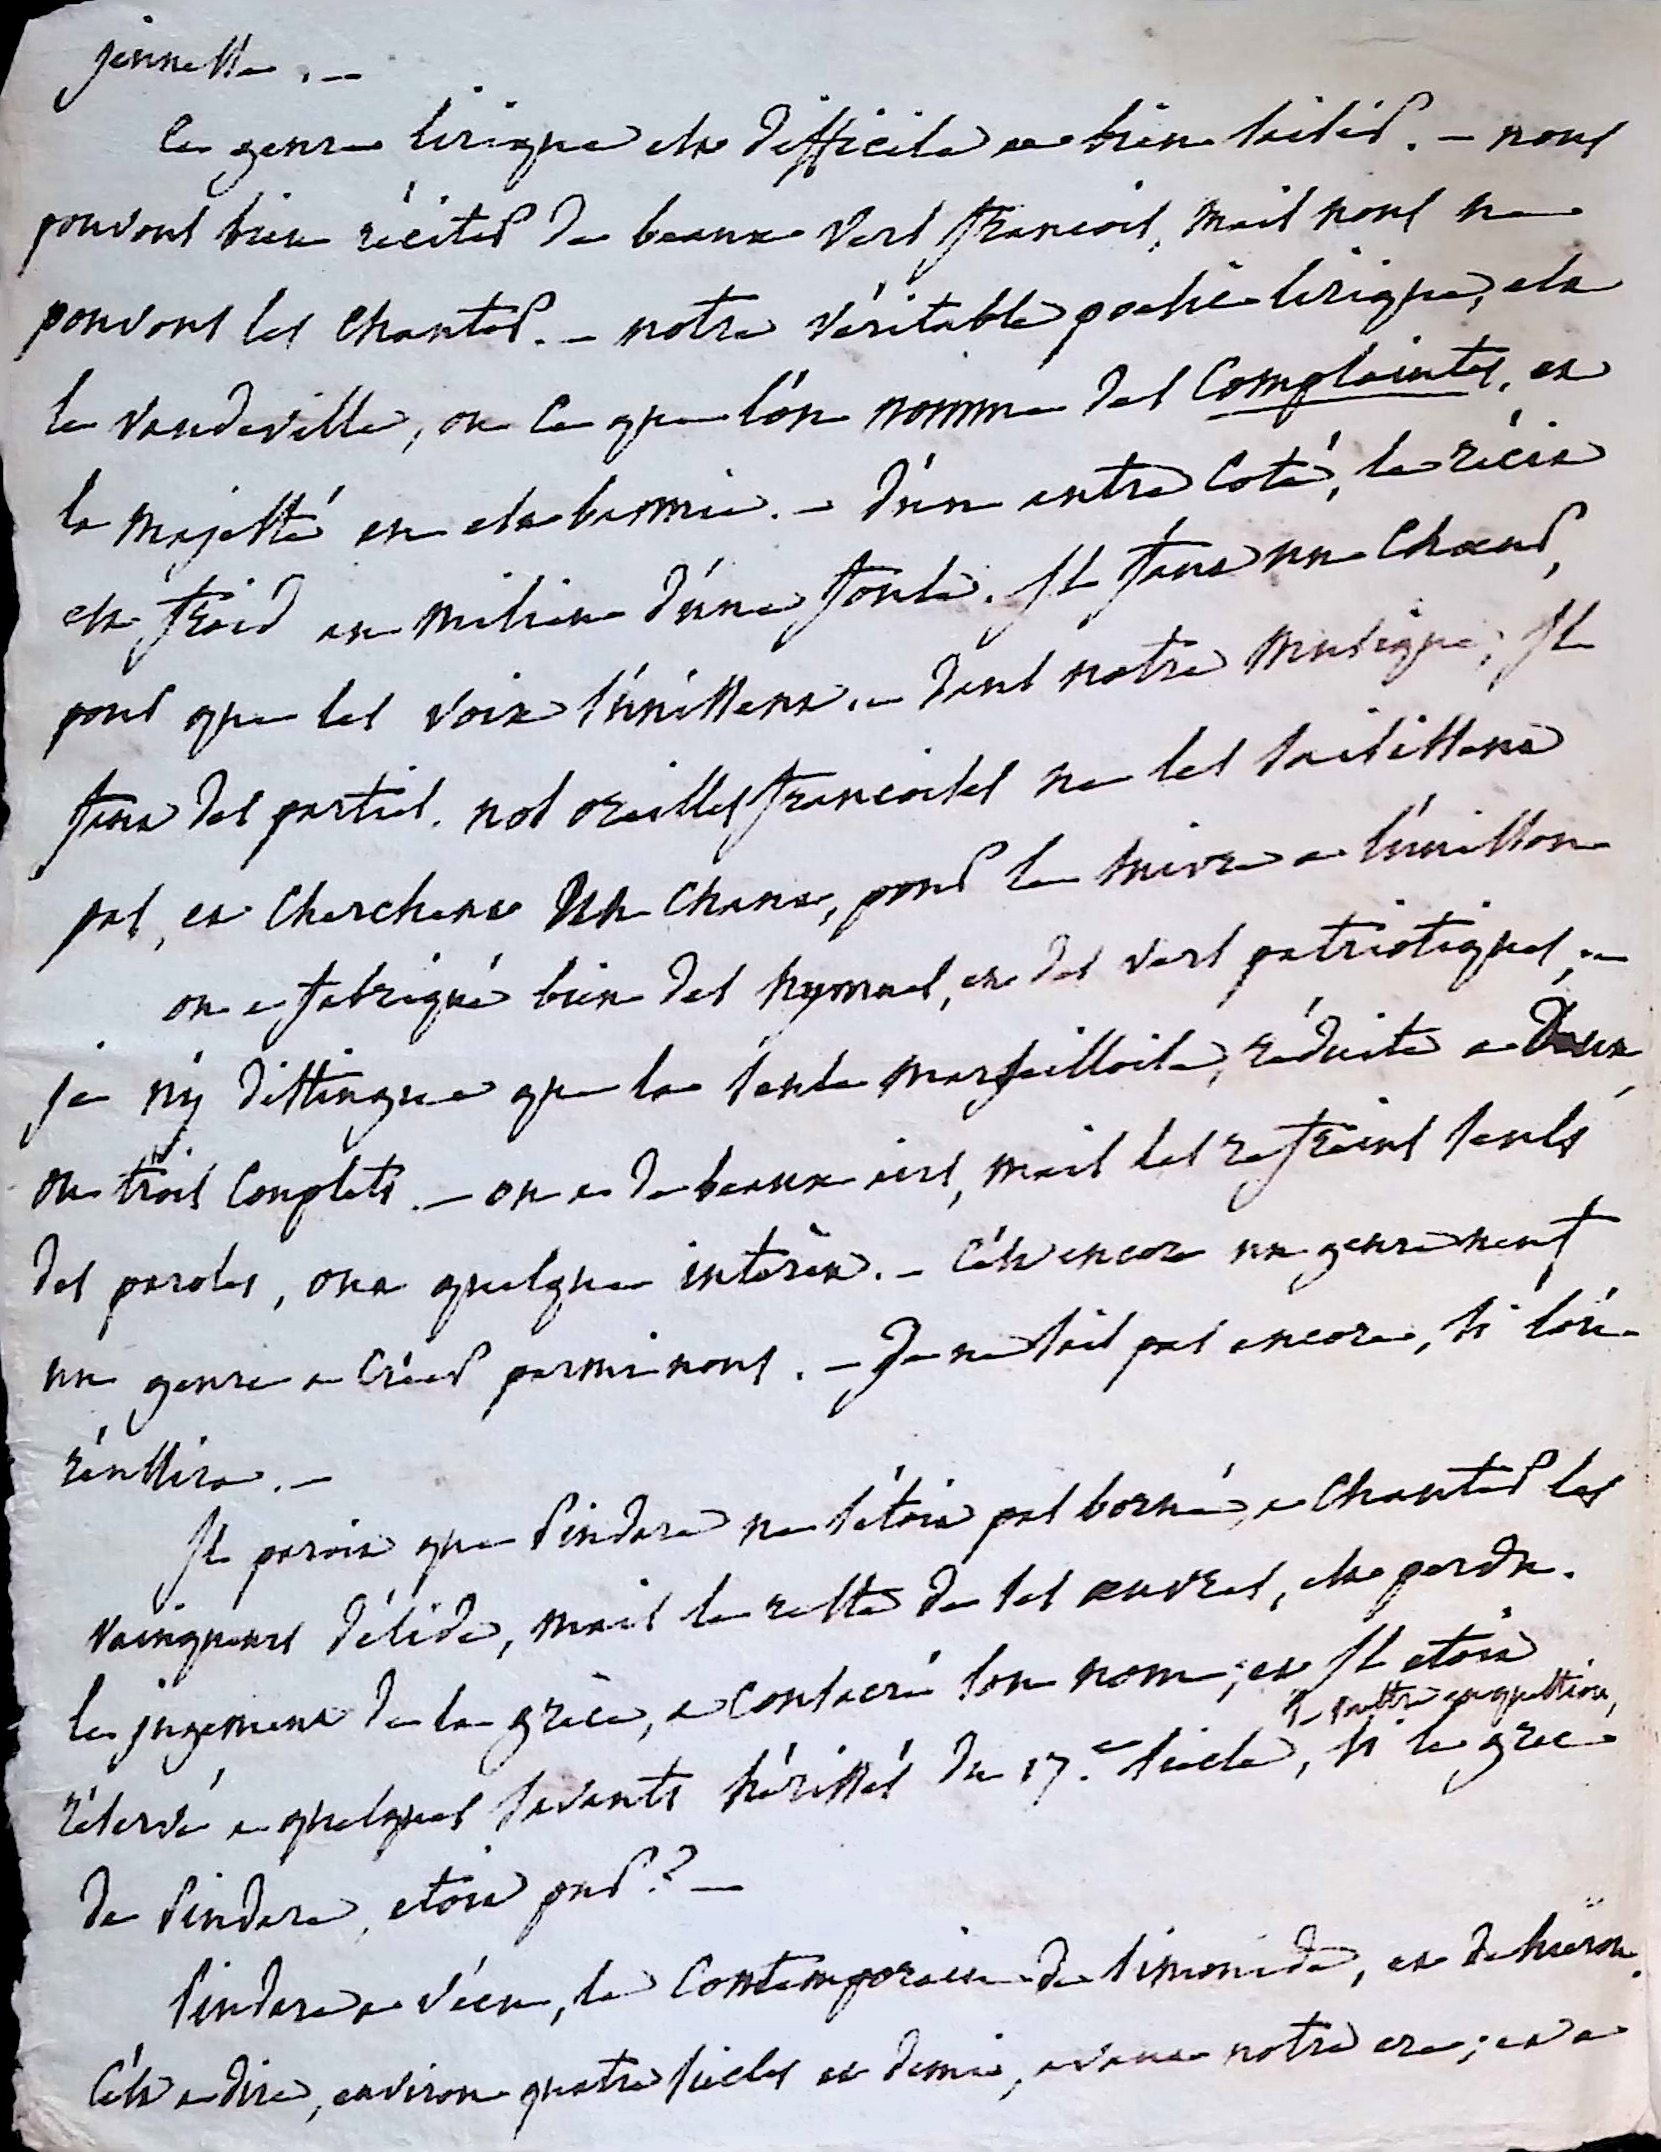 jeunesse. —
Ce genre lirique est difficile a bien saisir. — nous
pouvons bien réciter de beaux vers francois, mais nous ne
pouvons les chanter. — notre véritable poesie lirique, est
le vaudeville, ou ce que l'on nomme des Complaintes, et
la majesté en est bannie. — d'un autre coté, le récit
est froid au milieu d'une foule. Il faut un choeur,
pour que les voix s'unissent. — dans notre musique, Il
faut des parties. nos oreilles francoises ne les saisissent
pas, et cherchent un chant, pour le suivre a l'unisson
on a fabriqué bien des hymnes, et des vers patriotiques; —
je n'y distingue que la seule marseilloise, réduite a deux,
ou trois couplets. — on a de beaux airs, mais les refrains seuls
des paroles, ont quelque interèt. — C'est encore un genre neuf
un genre a créer parmi nous. — Je ne sais pas encore, si l'on
réussira. —
Il paroit que Pindare ne s'étoit pas borné, a chanter les
vainqueurs d'élide, mais le reste de ses œuvres, est perdu.
le jugement de la grèce, a consacré son nom; et Il etoit
réservé a quelques savants hérissés du 17.e siècle, de mettre en question, si le grec
de Pindare, etoit pur? —
Pindare a vécu, le contemporain de simonide, et de hiéron.
C'est a dire, environ quatre siecles et demi, avant notre ere; et a